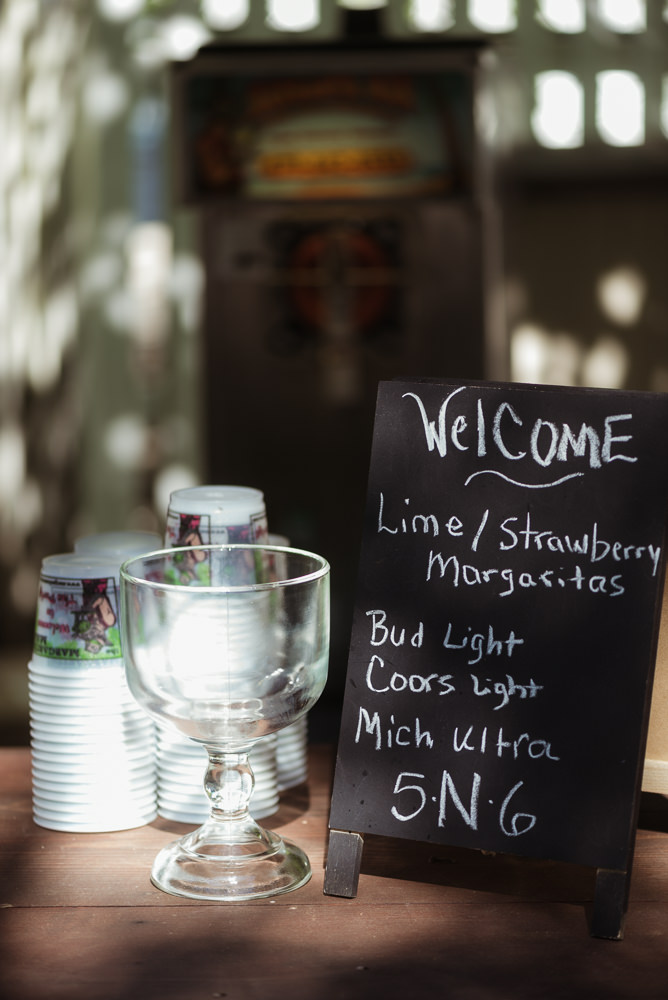 WelCOME
Lime / Strawberry
Margaritas
Bud Light
Coors Light
Mich Ultra
5·N·6